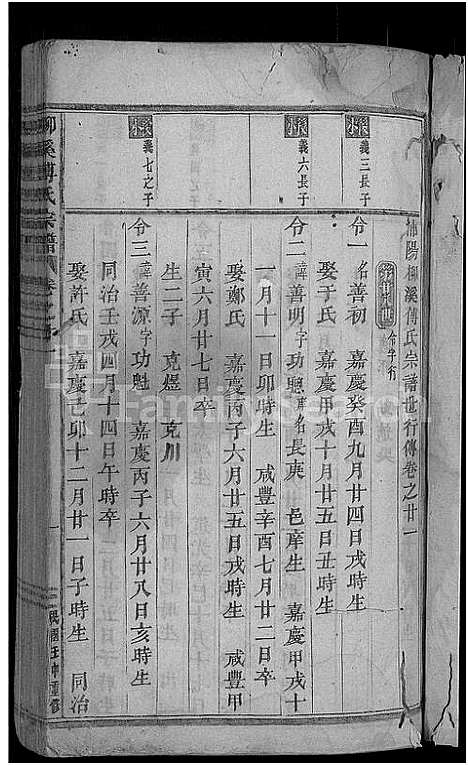 浦陽柳溪傅氏宗譜世行傳卷之廿一
令字行
義三長子
令一 名善初 嘉慶癸酉九月廿四日戌時生
娶于氏 嘉慶甲戌十月廿五日丑時生
義六長子
令二 諱善明字功聰庠名長庚 邑庠生 嘉慶甲戌十
一月十一日卯時生 咸豐辛酉七月廿二日卒
娶鄭氏 嘉慶丙子六月廿五日戌時生 咸豐甲
寅六月廿七日卒
生二子 克煜 克川
義七之子
令三 諱善源字功魁 嘉慶丙子六月廿八日亥時生
同治壬戌四月十四日午時卒
娶許氏 嘉慶己卯十二月廿一日子時生 同治
柳溪傅氏宗譜 卷之廿一
一
民國壬申重修
FamilySearch